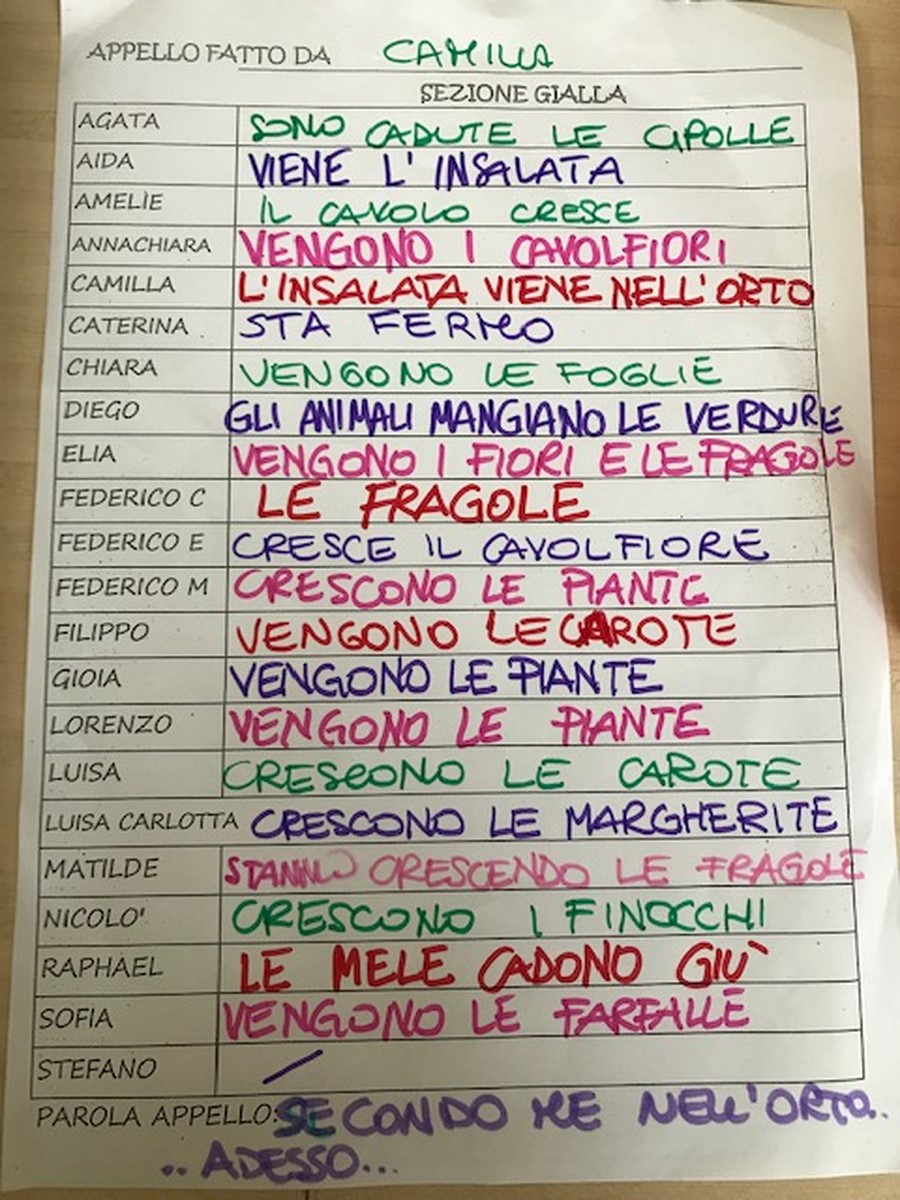 APPELLO FATTO DA CAMILLA
SEZIONE GIALLA
AGATA SONO CADUTE LE CIPOLLE
AIDA VIENE L'INSALATA
AMELIE IL CAVOLO CRESCE
ANNACHIARA VENGONO I CAVOLFIORI
CAMILLA L'INSALATA VIENE NELL'ORTO
CATERINA STA FERMO
CHIARA VENGONO LE FOGLIE
DIEGO GLI ANIMALI MANGIANO LE VERDURE
ELIA VENGONO I FIORI E LE FRAGOLE
FEDERICO C LE FRAGOLE
FEDERICO E CRESCE IL CAVOLFIORE
FEDERICO M CRESCONO LE PIANTE
FILIPPO VENGONO LE CAROTE
GIOIA VENGONO LE PIANTE
LORENZO VENGONO LE PIANTE
LUISA CRESCONO LE CAROTE
LUISA CARLOTTA CRESCONO LE MARGHERITE
MATILDE STANNO CRESCENDO LE FRAGOLE
NICOLO' CRESCONO I FINOCCHI
RAPHAEL LE MELE CADONO GIÙ
SOFIA VENGONO LE FARFALLE
STEFANO /
PAROLA APPELLO: SECONDO ME NELL'ORTO..
.. ADESSO...